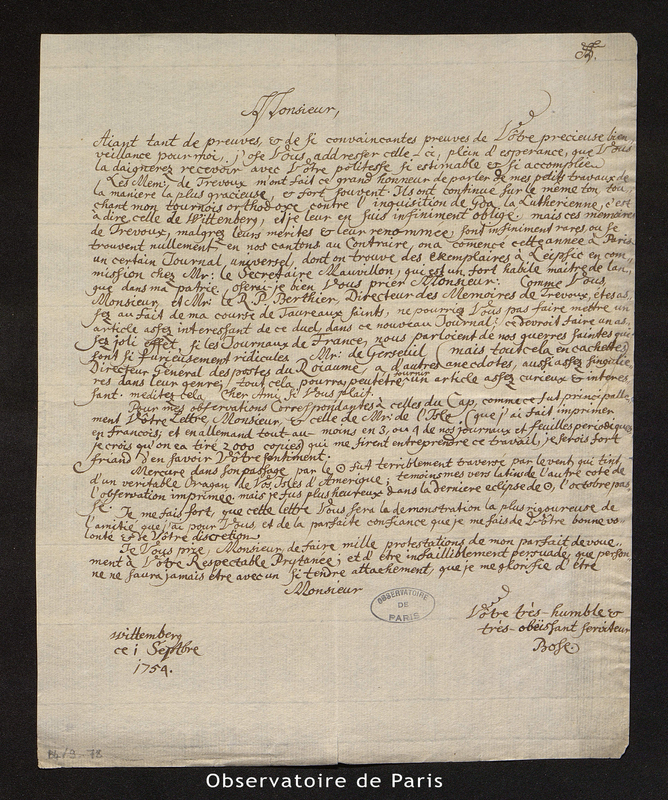 Monsieur,
Aiant tant de preuves, & de si convaincantes preuves de Vôtre precieuse bien
veillance pour moi, j'ose Vous addresser celle-ci, plein d'esperance, que Vous
la daignerez recevoir avec Vôtre politesse si estimable & si accomplie.
Les Mem: de Trevoux m'ont fait ce grand honneur de parler de mes petit travaux de
la maniere la plus gracieuse, & fort souvent. Ils ont continué sur le même ton tou
chant mon tournois orthodoxe contre l'inquisition de Goa, la Lutherienne, c'est
à dire, celle de Wittenberg, et je leur en suis infiniment obligé. mais ces memoires
de Trevoux, malgrez leurs merites & leur renommée, sont infiniment rares, ou se
trouvent nullement en nos cantons au Contraire, on a comencé cette année à Paris
un certain Journal, universel, dont on trouve des exemplaires à Leipsic en com
mission chez Mr: le Secretaire Mauvillon, qui est un fort habile maitre de lan,
gue dans ma patrie. oserai-je bien Vous prier Monsieur: Comme Vous,
Monsieur, et Mr: le R. P. Berthier, Directeur des Memoires de Trevoux, etes as,
sez au fait de ma course de Taureaux saints, ne pourriez Vous pas faire mettre un
article assez interessant de ce duel, dans ce nouveau Journal; ce devroit faire un as,
sez joli effect, si les Journaux de France, nous parloient de nos guerres saintes qui
sont si furieusement ridicules. Mr: de Gerseuil (mais tout cela en cachette)
Directeur Général des postes du Roiaume, a d'autres anecdotes, aussi assez singulie
res dans leur genre, tout cela pourra peutetre fournir un article assez curieux & interes,
sant. meditez cela, Cher Ami, s'il Vous plait.
Pour mes observations Correspondantes à celles du Cap, comme ce fut principalle
ment Vôtre Lettre, Monsieur, & celle de Mr: de l'Isle (que j'ai fait imprimer
en francois; et en allemand tout-au-moins en 3, ou 4 de nos journaux et feuilles periodiques
je crois qu'on en a tiré 2000 copies) qui me firent entreprendre ce travail, je serois fort
friand d'en savoir Vôtre sentiment.
Mercure dans son passage par le ☉ fut terriblement traversé par le vent, qui tint
d'un veritable Oragan de Vos Isles d'Amerique; temoins mes vers latins de l'autre coté de
l'observation imprimée. mais je fus plus heureux dans la derniere eclipse de ☉, l'octobre pas,
sé.
Je me fais fort, que cette lettre Vous sera la demonstration la plus rigoureuse de
l'amitié que j'ai pour Vous, et de la parfaite confiance que je me fais de Vôtre bonne vo-
lonté & de Vôtre discretion.
Je Vous prie, Monsieur, de faire mille protestations de mon parfait devoue,
ment à Vôtre Respectable Prytanée; et d'être infailliblement persuadé, que person
ne ne saura jamais être avec un si tendre attachement, que je me glorifie d'être
Monsieur
OBSERVATOIRE
DE
PARIS
Vôtre très-humble &
très-obëissant serviteur
Bose.
Wittemberg
ce 1 Septbre
1754.
Observatoire de Paris